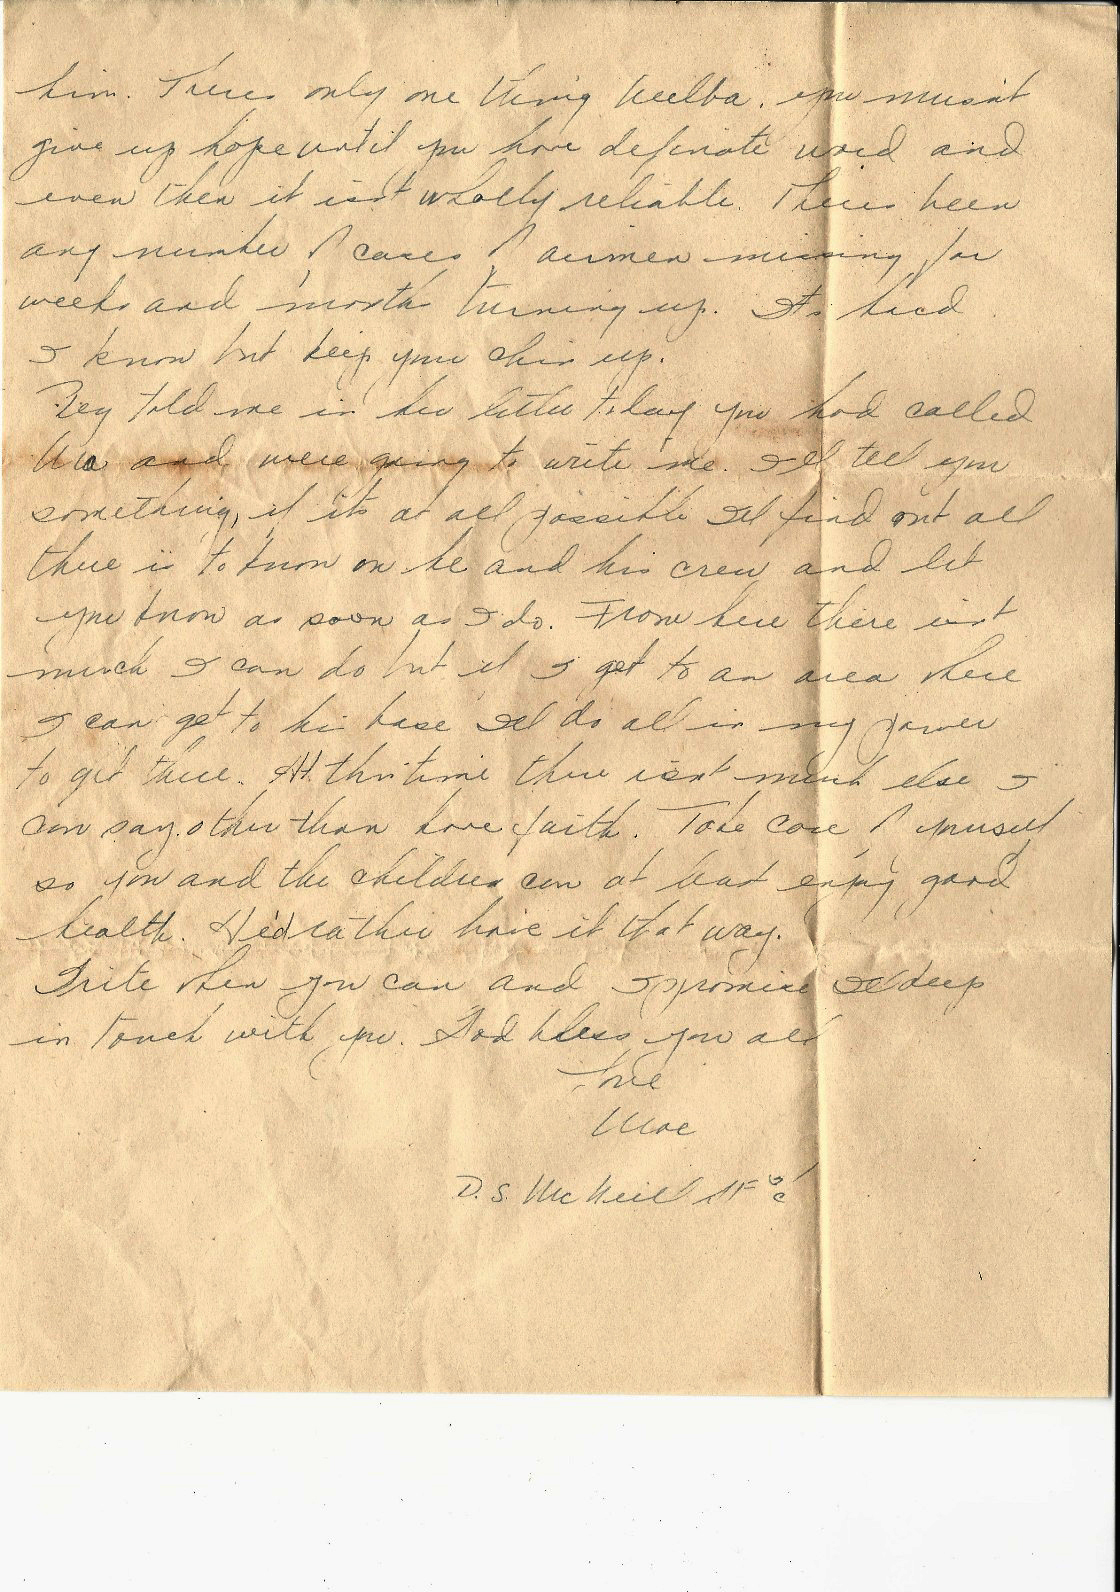 him. Theres only one thing Melba. you musn't
give up hope until you have definate word and
even then it isn't wholly reliable. Theres been
any number of cases of airmen missing for
weeks and months turning up. Its hard
I know but keep your chin up.
Peg told me in her letter today you had called
Ma and were going to write me. I'll tell you
something, if its at all possible I'll find out all
there is to know on he and his crew and let
you know as soon as I do. From here there isnt
much I can do but if I get to an area where
I can get to his base I'll do all in my power
to get there. At this time there isn't much else I
can say. other than have faith. Take care of yourself
so you and the children can at least enjoy good
health. He'd rather have it that way.
Write when you can and I promise I'll keep
in touch with you. God bless you all
Love
Mac
D.S. McNeill